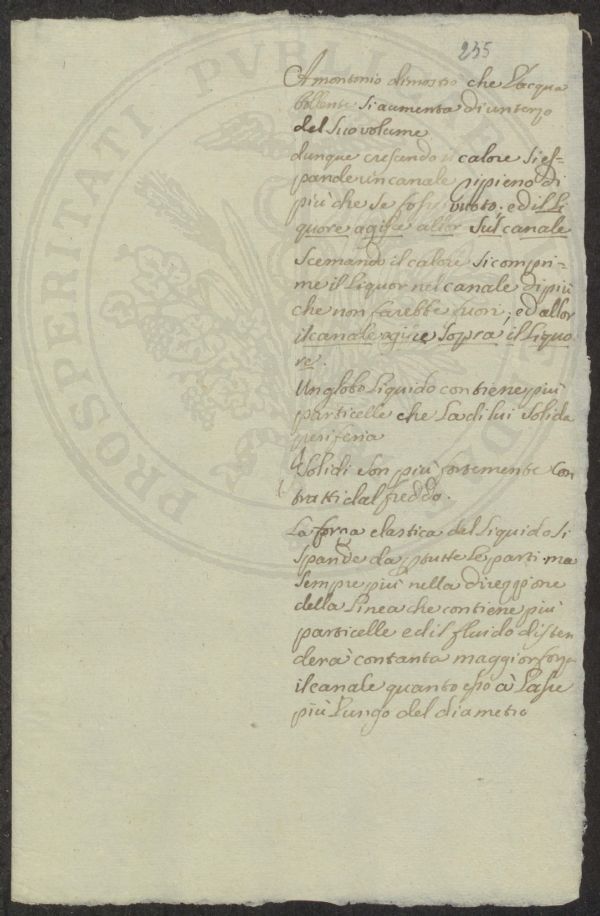 235
Amontonio dimostrò che l'acqua
bollente si aumenta di un terzo
del suo volume
dunque crescendo il calore si es=
pande un canale ripieno di
più che se fosse vuoto; ed il Li
quore agisce allor sul canale
Scemando il calore si compri=
me il liquor nel canale di più
che non farebbe fuori, ed allor
il canale agisce sopra il liquo
re.
Un globo liquido contiene più
particelle che la di lui solida
periferia
I solidi son più fortemente con
tratti dal freddo.
La forza elastica del liquido si
spande da per tutte le parti ma
sempre più nella direzzione
della linea che contiene più
particelle ed il fluido disten
derà con tanta maggior forza
il canale quanto esso à l'asse
più lungo del diametro
PROSPERITATI PUBLICAE